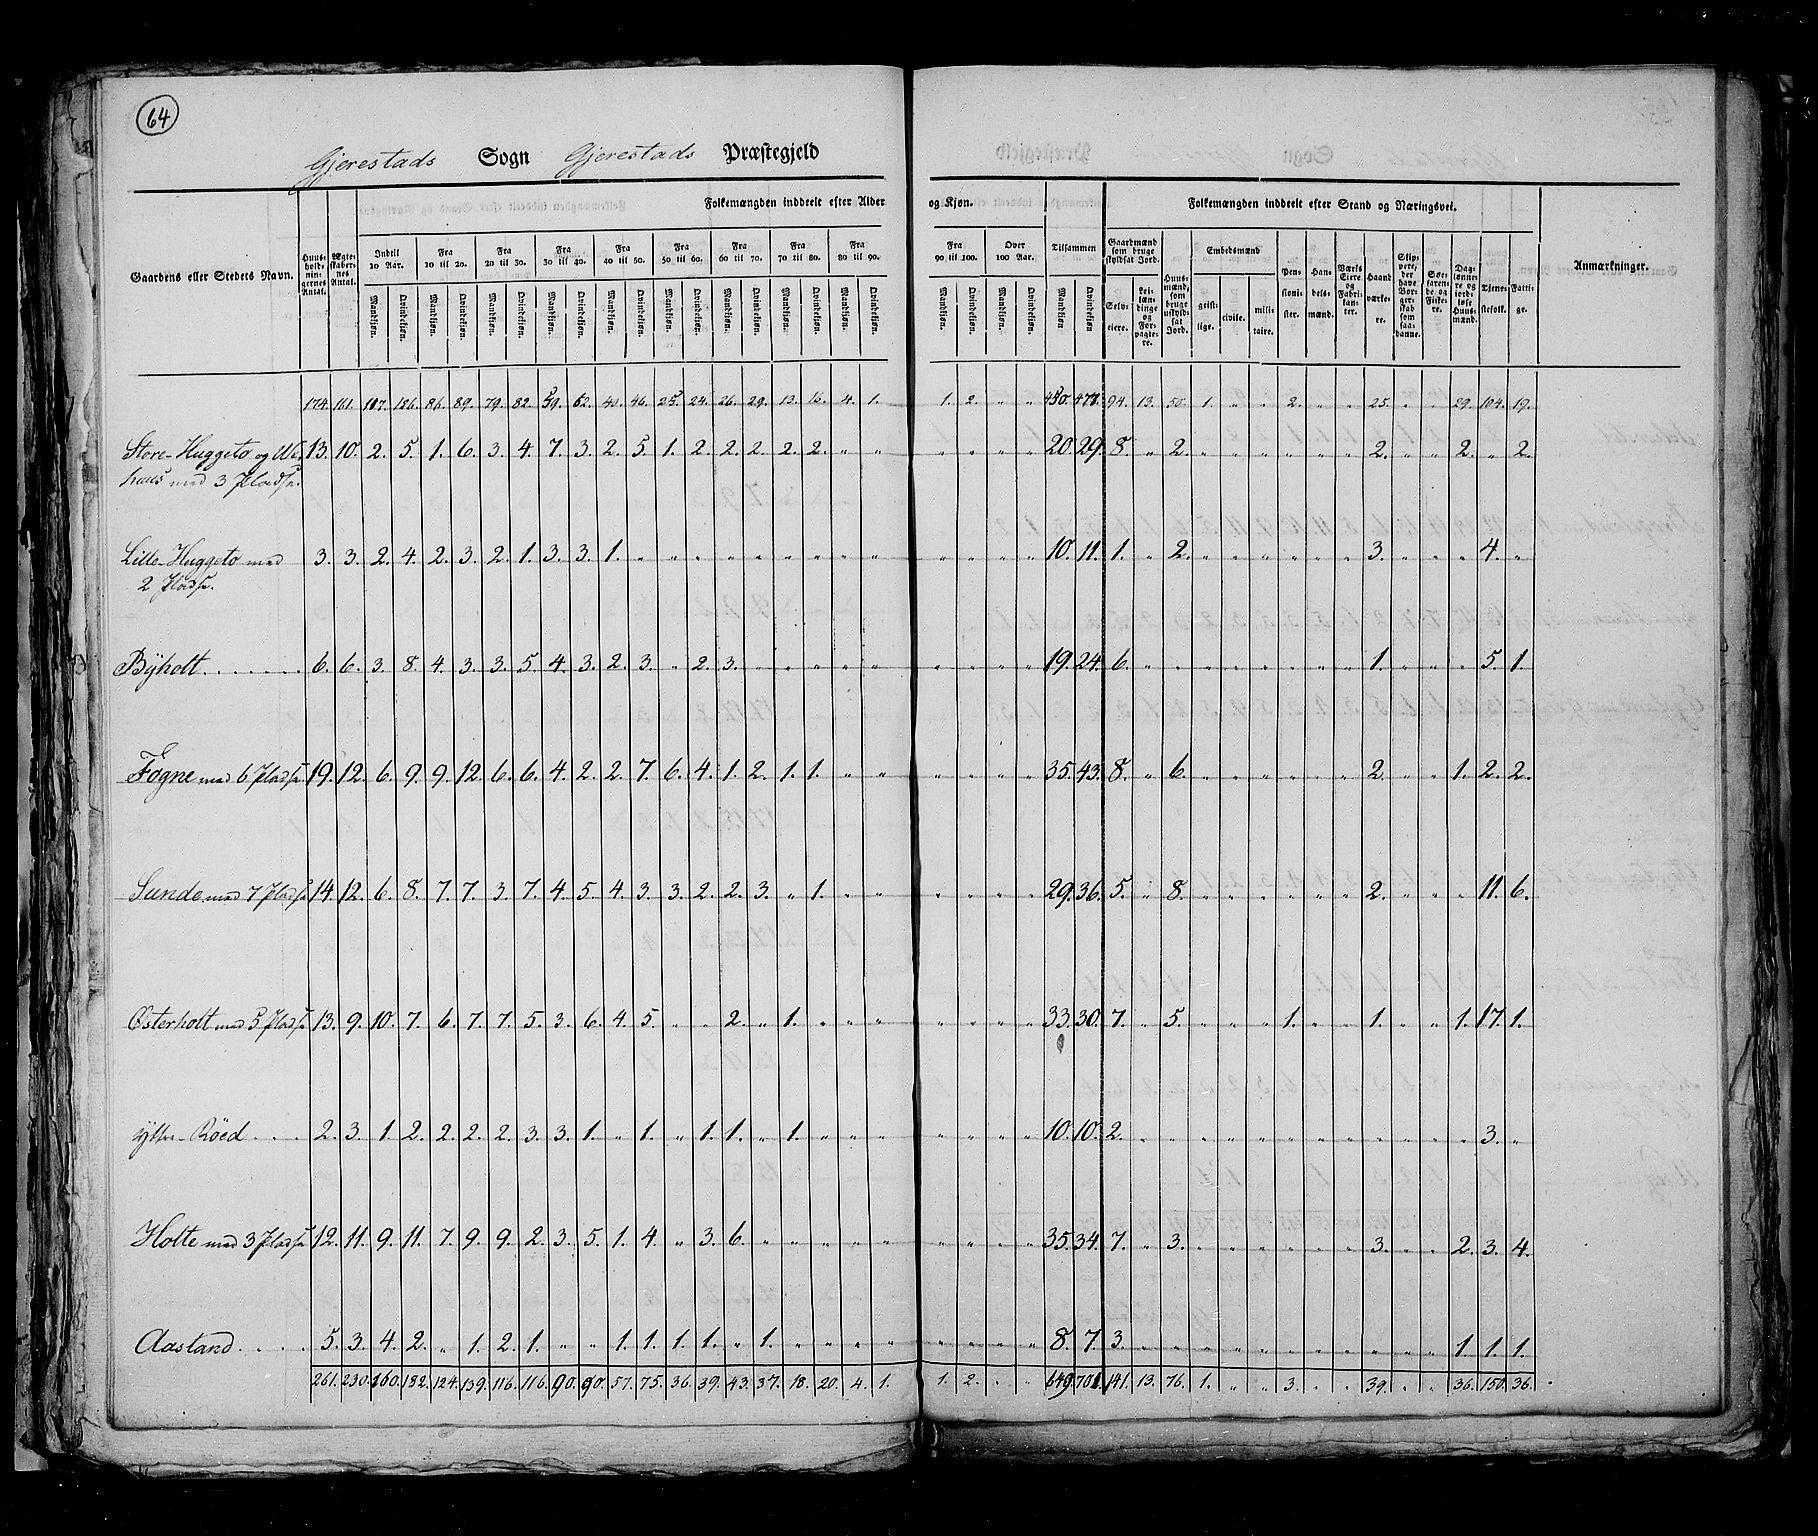 64
Gjerestads Sogn Gjerestads Præstegjeld
Folkemængden inddeelt efter Alder og Kjøn.
Folkemængden inddeelt efter Stand og Næringsvei.
Gaardens eller Stedets Navn.
Huusholdningernes Antal.
Ægteskabernes Antal.
Indtil 10 Aar.
Fra 10 til 20.
Fra 20 til 30.
Fra 30 til 40.
Fra 40 til 50.
Fra 50 til 60.
Fra 60 til 70.
Fra 70 til 80.
Fra 80 til 90.
Fra 90 til 100.
Over 100 Aar.
Tilsammen
Mandkjøn. Qvindekjøn.
Gaardmænd som bruge skyldsat Jord.
Selveiere.
Leilændinge og Forpagtere.
Huusmænd, som bruge uskyldsat Jord.
Embedsmænd
geistlige.
civile.
militaire.
Pensionister.
Handelsmænd.
Værks Eiere og Fabrikanter.
Haandværkere.
Slippere, der have Borgerskab som saadanne.
Søefarende og Fiskere.
Daglønnere og jordløse Huusmænd.
Tjenestefolk.
Fattige.
Anmærkninger.
174. 161. 107. 126. 86. 89. 79. 82. 59. 62. 40. 46. 25. 24. 26. 29. 13. 15. 4. 1. 1. 2. " " 450. 477. 94. 13. 50. 1. " " 2. " " 25. " " 29. 104. 19.
Store-Huggeto og We- 13. 10. 2. 5. 1. 6. 3. 4. 7. 3. 2. 5. 1. 2. 2. 2. 2. 2. " " " " " " 20. 29. 8 " 2. " " " " " " 2. " " 2. " 2.
huus med 3 Pladse.
Lille-Huggeto med 3. 3. 2. 4. 2. 3. 2. 1. 3. 3. 1. " " " " " " " " " " " " " 10. 11. 1. " 2. " " " " " " 3. " " " 4. "
2 Pladse.
Byholt. . . . . . 6. 6. 3. 8. 4. 3. 3. 5. 4. 3. 2. 3. " 2. 3. " " " " " " " " " 19. 24. 6. " " " " " " " " 1. " " " 5. 1.
Fogne med 6 Pladse 19. 12. 6. 9. 9. 12. 6. 6. 4. 2. 2. 7. 6. 4. 1. 2. 1. 1. " " " " " " 35. 43. 8. " 6. " " " " " " 2. " " 1. 2. 2.
Sunde med 7 Pladse 14. 12. 6. 8. 7. 7. 3. 7. 4. 5. 4. 3. 3. 2. 2. 3. " 1. " " " " " " 29. 36. 5. " 8. " " " " " " 2. " " " 11. 6.
Østerholt med 5 Pladse 13. 9. 10. 7. 6. 7. 7. 5. 3. 6. 4. 5. " " 2. " 1. " " " " " " " 33. 30. 7. " 5. " " " 1. " " 1. " " 1. 17. 1.
Ytter-Röed . . . 2. 3. 1. 2. 2. 2. 2. 3. 3. 1. " 1. " 1. 1. " 1. " " " " " " " 10. 10. 2. " " " " " " " " " " " " 3. "
Holte med 3 Pladse 12. 11. 9. 11. 7. 9. 9. 2. 3. 5. 1. 4. " 3. 6. " " " " " " " " " 35. 34. 7. " 3. " " " " " " 3. " " 2. 3. 4.
Aasland . . . . 5. 3. 4. 2. " 1. 2. 1. " " 1. 1. 1. 1. " 1. " " " " " " " " 8. 7. 3. " " " " " " " " " " " 1. 1. 1.
261. 230. 160. 182. 124. 139. 116. 116. 90. 90. 57. 75. 36. 39. 43. 37. 18. 20. 4. 1. 1. 2. " " 649. 701. 141. 13. 76. 1. " " 3. " " 39. " " 36. 150. 36.